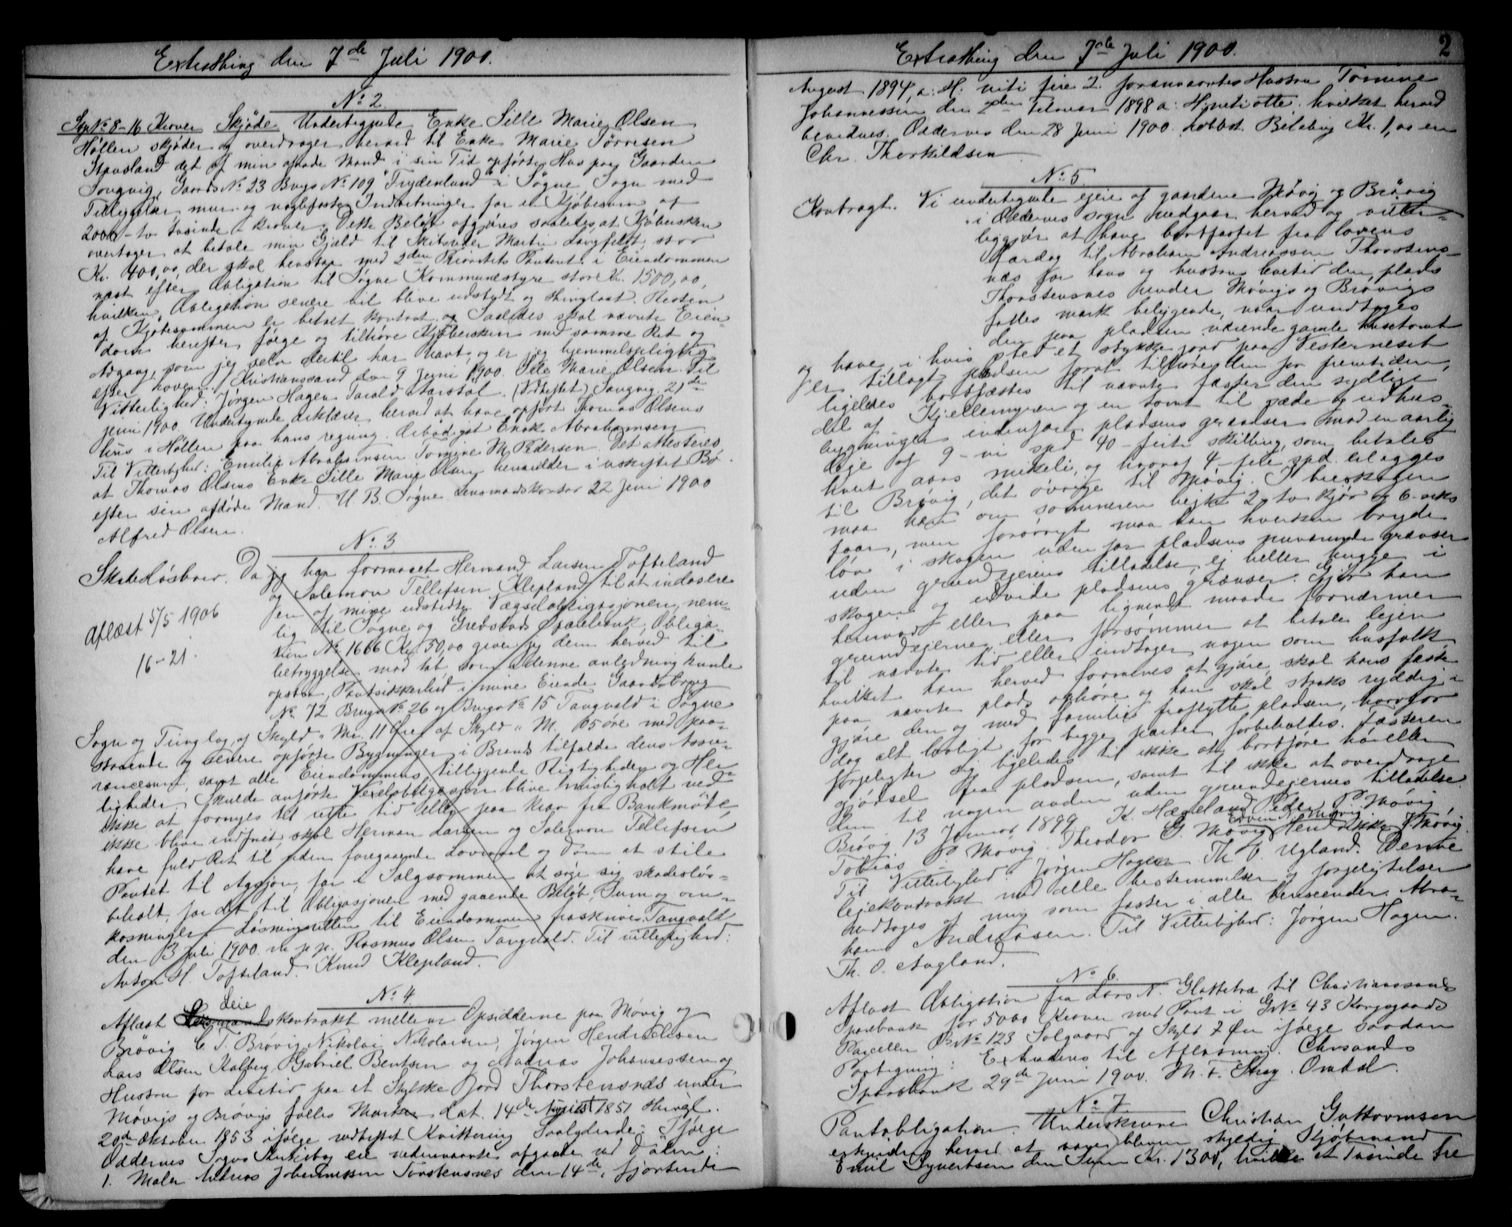 Extrathing den 7de Juli 1900.
No 2
Stp No 8-16 Kroner Skjöde. Undertegnede Enke Sille Marie Olsen
Höllen skjöder og overdrager herved til Enke Marie Törresen
Stausland det af min afdöde Mand i sin Tid opförte Hus paa Gaarden
Songvig, Gaards No 23 Brugs No 109 "Frydenlund" i Sögne Sogn med
Tilliggelse, mur- og naglefaste Indretninger for en Kjöbesum af
2000 - to Tusinde - Kroner. Dette Belöb afgjöres saaledes at Kjöbersken
overtager at betale min Gjæld til Martin Langfeldt, stor
Kr. 400,00, der skal henstaa med 2den Prioritets Panteret i Eiendommen
næst efter Obligation til Sögne Kommunestyre stor Kr. 1500,00,
hvilken Obligation senere vil blive udstedt og thinglæst. Resten
af Kjöbesummen er betalt kontant og Saaledes skal nævnte Eien-
dom herefter fölge og tilhöre Kjöbersken med samme Ret og
Adgang, som jeg selv dertil har havt og er jeg hjemmelspligtig
efter Loven. Kristianssand den 9 Juni 1900. Sille Marie Olsen. Til
Vitterlighed: Jörgen Hagen Tarald Aarstöl. (Vedheftet) Sangvig 21de
Juni 1900 Undertegnede erklærer herved at have opfört Thomas Olsens
hus i Höllen paa hans regning. Arbödigst Enok Abrahamsen
Til Vitterlighed: Emilie Abrahamsen Tomine M. Pedersen. Det attesteres
at Thomas Olsens Enke Sille Marie Olsen hensidder i uskiftet Bo
efter sin afdöde Mand. U. B. Sogne Lensmandskontor 22 Juni 1900
Alfred Olsen.
No 3
Skadeslösbrev. Da jeg har formaaet Hermand Larsen Tofteland
og Salemon Tellefsen Klepland til at indossere
en af mine udstedte Vægselobligasjoner, nem-
lig til Sogne og Greibstads Sparebank Obliga-
tion No 1666 Kr. 50,00 giver jeg dem herved til
betryggelse mod tab som i denne anledning kunde
opstaa, Pantsikkerhed i mine Eiende Gaardsbrug
No 72 Brugs No 26 og Brugs No 15 Tangvald i Sögne
Aflæst 5/5 1906
16-21.
Sogn og Tinglag af Skyld " Mrk 11 Öre af Skyld " M. 65 öre med paa-
staaende og senere opförte Bygninger i Brands tilfælde dens Assu-
rancesum, samt alle Eiendommens tilliggende Rigtigheder og Her-
ligheder. Skulde anförte Vexelobligasjon blive misligholt ved
ikke at fornyes til rette tid eller paa krav fra Bankmöte
ikke blive indfriet, skal Herman Larsen og Salemon Tellefsen
have fuld Ret til uden foregaaende Lovmaal og Dom at stile
Pantet til Agsjon, for i Salgsommen at söge sig skadeslös-
beholt, for det til Obligasjonen med gaaende Belöb Sum og om-
kosninger. Lösningsretten til Eiendommen frasknives. Tangvald
den 3 Juli 1900. m. p. p. Rasmus Olsen Tangvald. Til vitterlighed:
Anton H Tofteland. Knud Klepland.
No 4
Aflæst Leiekontrakt mellem Opsidderne paa Mövig og
Brövig C. T. Brövig, Nikolai Nikolaisen, Jörgen Hendriksen
Lars Olsen Kalberg, Gabriel Bentsen og Andreas Johannessen og
Hustru for Livstid paa et Stykke Jord Thorstensnæs under
Mövigs og Brövigs fælles Marker dat. 14de August 1851 thingl.
20de Oktober 1853 ifölge vedheftet Kvittering Saalydende: Ifölge
Oddernes Sogns Kirkebog ere nedennævnte afgaaede ved döden:
1. Maler Andreas Johannessen Torstensnes den 14de, fjortende
Extrathing den 7de Juli 1900. 2
August 1894, a: H: niti fire 2. forannævntes Hustru Tomine
Johannessen den 2den Februar 1898 a: H: niti otte. hvilket herved
bevidnes. Oddernes den 28 Juni 1900. Lovbst. Betaling Kr. 1,00 en
Chr. Thorkildsen
No 5
Kontragt. Vi undertegnede ejere af gaardene Mövig og Brövig
i Oddernes sogn vedgaar herved og vitter-
liggjör at have bortfæstet fra Lovens
Fardag til Abraham Andreassen Thorstens-
næs for hans og hustrus levetid den plads
Thorstensnes under Mövigs og Brövigs
fælles mark beliggende, naar undtages
den paa pladsen værende gamle hustomt
og have, i hvis sted et stykke jord paa Vesterneset
er tillagt pladsen forat tilhöre den for fremtiden,
ligeledes bortfæstes til nævnte fæster den sydlige
del af Kjellemyren og en tomt til sæde og udhus-
bygninger indenfor pladsens grændser mod en aarlig
leje af 9 - ni spd 40 - förti skilling, som betales
hvert aars mikeli, og hvoraf 4 - fire spd. erlægges
til Brövig, det övrige til Mövig. I treskogen
maa han om sommeren bejte 2 - to kjör og 6 - seks
faar, men forövrigt maa han hverken bryde
löv i skogen uden for pladsens nuværende grænser
uden grundejerens tilladelse, ej heller hugge i
skogen og udvide pladsens grænser. Gjör han
herimod eller paa lignende maade fornærmer
grundejerne, eller forsömmer at betale lejen
til nævnte tid eller indtager nogen som husfolk
hvilket han herved formenes at gjöre skal hans fæste
paa nævnte plads ophöre og han skal straks ryddig-
gjöre den og med familie fraflytte pladsen, hvorfor
dog alt lovligt for begge parter forbeholdes. Fæsteren
forpligter sig ligeledes til ikke at bortföre hö eller
gjödsel fra pladsen, samt til ikke at overdrage
den til nogen anden uden grundejernes tilladelse
Brövig 13 Januar 1899 K. Hægeland Peder P Mövig
Tobias P Mövig. Theodor G. Mövig Hendrikke J Mövig
Til Vitterlighed: Jörgen Hagen Th. O Ugland. Denne
lejekontrakt med alle bestemmelser og forpligtelser
vedtages af mig som fæster i alle henseender. Abra-
ham Andreasen. Til Vitterlighed: Jörgen Hagen.
Th. O. Augland.
No 6
Aflæst Obligation fra Lars N. Glattetræ til Christianssands
Sparebank for 5000 Kroner med Pant i G No 43 Kongsgaards
Parceller B No 123 Solgaard af Skyld 7 Öre ifölge saadan
Paategning: Extraderes til Aflæsning. Chrsands
Sparebank 29de Juni 1900. M. F. Omdal.
No 7
Pantobligation. Underskrevne Christian Guttormsen
erkjender herved at være bleven skyldig Kjöbmand
Emil Syvertsen den Sum Kr. 1300, hvilke et Tusinde tre